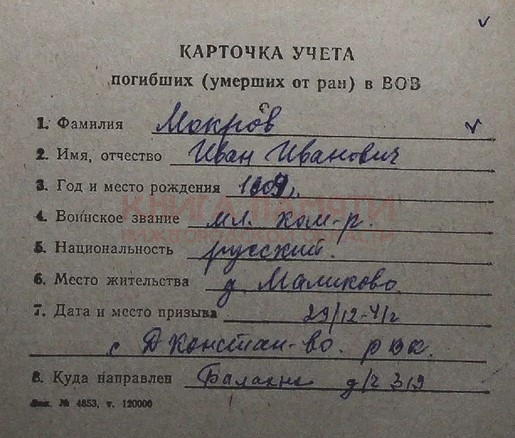 КАРТОЧКА УЧЕТА
погибших (умерших от ран) в ВОВ
1. Фамилия Мокров
2. Имя, отчество Иван Иванович
3. Год и место рождения 1909г.
КНИГА ПАМЯТИ
4. Воинское звание мл. ком-р.
НИЖЕГОРОДСКОЙ ОБЛАСТИ
5. Национальность русский.
6. Место жительства д. Маликово
7. Дата и место призыва 29/12-41г
с Д Констан-во. рвк.
8. Куда направлен Балахна д/ч 319
Зак. № 4853, т. 120000